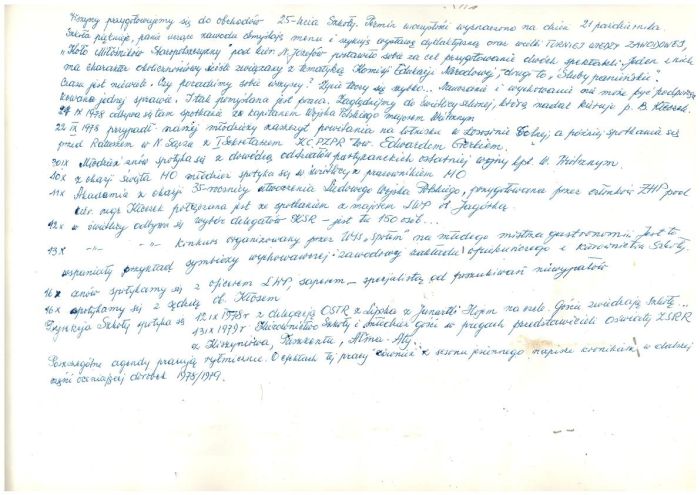 Wszyscy przygotowujemy się do obchodów 25-lecia Szkoły. Termin uroczystości wyznaczono na dzień 21 października.
Szkoła pięknieje, panie uczące zawodu obmyślają menu i szykują wystawę dydaktyczną oraz wielki TURNIEJ WIEDZY ZAWODOWEJ,
"Koło Miłośników Staropolszczyzny" pod kier. N. Józefów postawiło sobie za cel przygotowanie dwóch spektakli. Jeden z nich
ma charakter okolicznościowy ściśle związany z tematyką Komisji Edukacji Narodowej, drugi to "Śluby panieńskie".
Czasu jest niewiele. Czy poradzimy sobie wszyscy? Dni biegną szybko... Nauczanie i wychowanie nie może być podporządkowane
jednej sprawie. I tak pomyślana jest praca. Zaglądnijmy do świetlicy szkolnej, którą nadal kieruje p. B. Kłosek.
21 IX 1978 odbywa się tam spotkanie z kapitanem Wojska Polskiego majorem
22 IX 1978 przypadł naszej młodzieży zaszczyt powitania na lotnisku w Łososinie Dolnej, a później spotkania się
przed Ratuszem w N. Sączu z I Sekretarzem KC PZPR tow. Edwardem Gierkiem.
30 IX Młodzież znów spotyka się z dowódcą oddziałów partyzanckich ostatniej wojny kpt. W.
10 X z okazji święta MO młodzież spotyka się w świetlicy z pracownikiem MO
11 X Akademia z okazji 35-rocznicy utworzenia Ludowego Wojska Polskiego, przygotowana przez członków ZHP pod
kier. mgr. Kłosek połączona jest ze spotkaniem z majorem LWP ob. Jagórką.
12 X w świetlicy odbywa się wybór delegatów KSR - jest tu 150 osób...
13 X -"- -"- konkurs organizowany przez WSS "Społem" na młodego mistrza gastronomii. Jest to
wspaniały przykład symbiozy wychowawczej i zawodowej zakładu opiekuńczego i Kierownictwa Szkoły.
16 X znów spotykamy się z oficerem LWP, saperem - specjalistą od poszukiwań niewypałów
16 X spotykamy się z sędzią ob. Kłosem
Dyrekcja Szkoły spotyka się 12 IX 1978 r z delegacją OSTR z Lipska z na czele. Goście zwiedzają Szkołę..
13 IX 1979 r Kierownictwo Szkoły i Młodzież gości w progach przedstawicieli Oświaty ZSRR
z Kiszyniowa, Taszkentu, Ałma-Aty.
Poszczególne agendy pracują rytmicznie. O efektach tej pracy również z sezonu jesiennego napisze kronikarz w dalszej
części oceniającej dorobek 1978/1979.